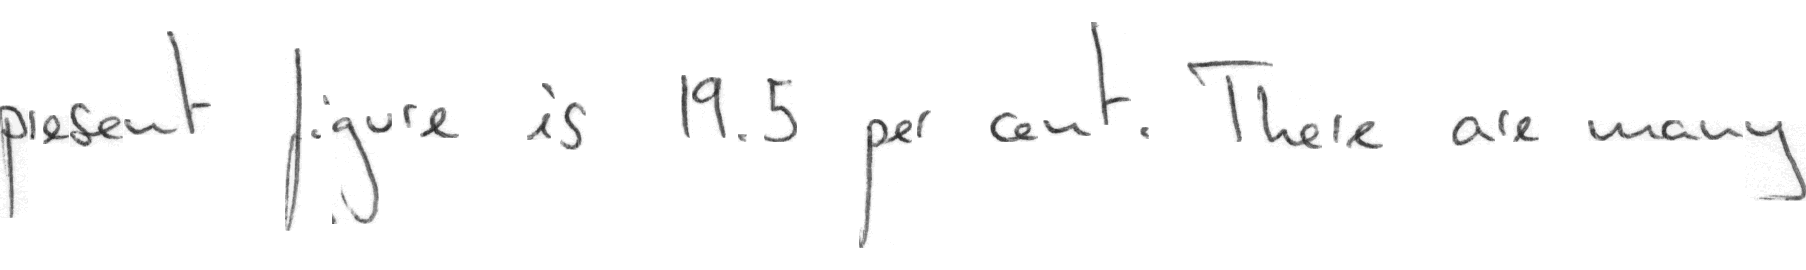 present figure is 19.5 per cent. There are many